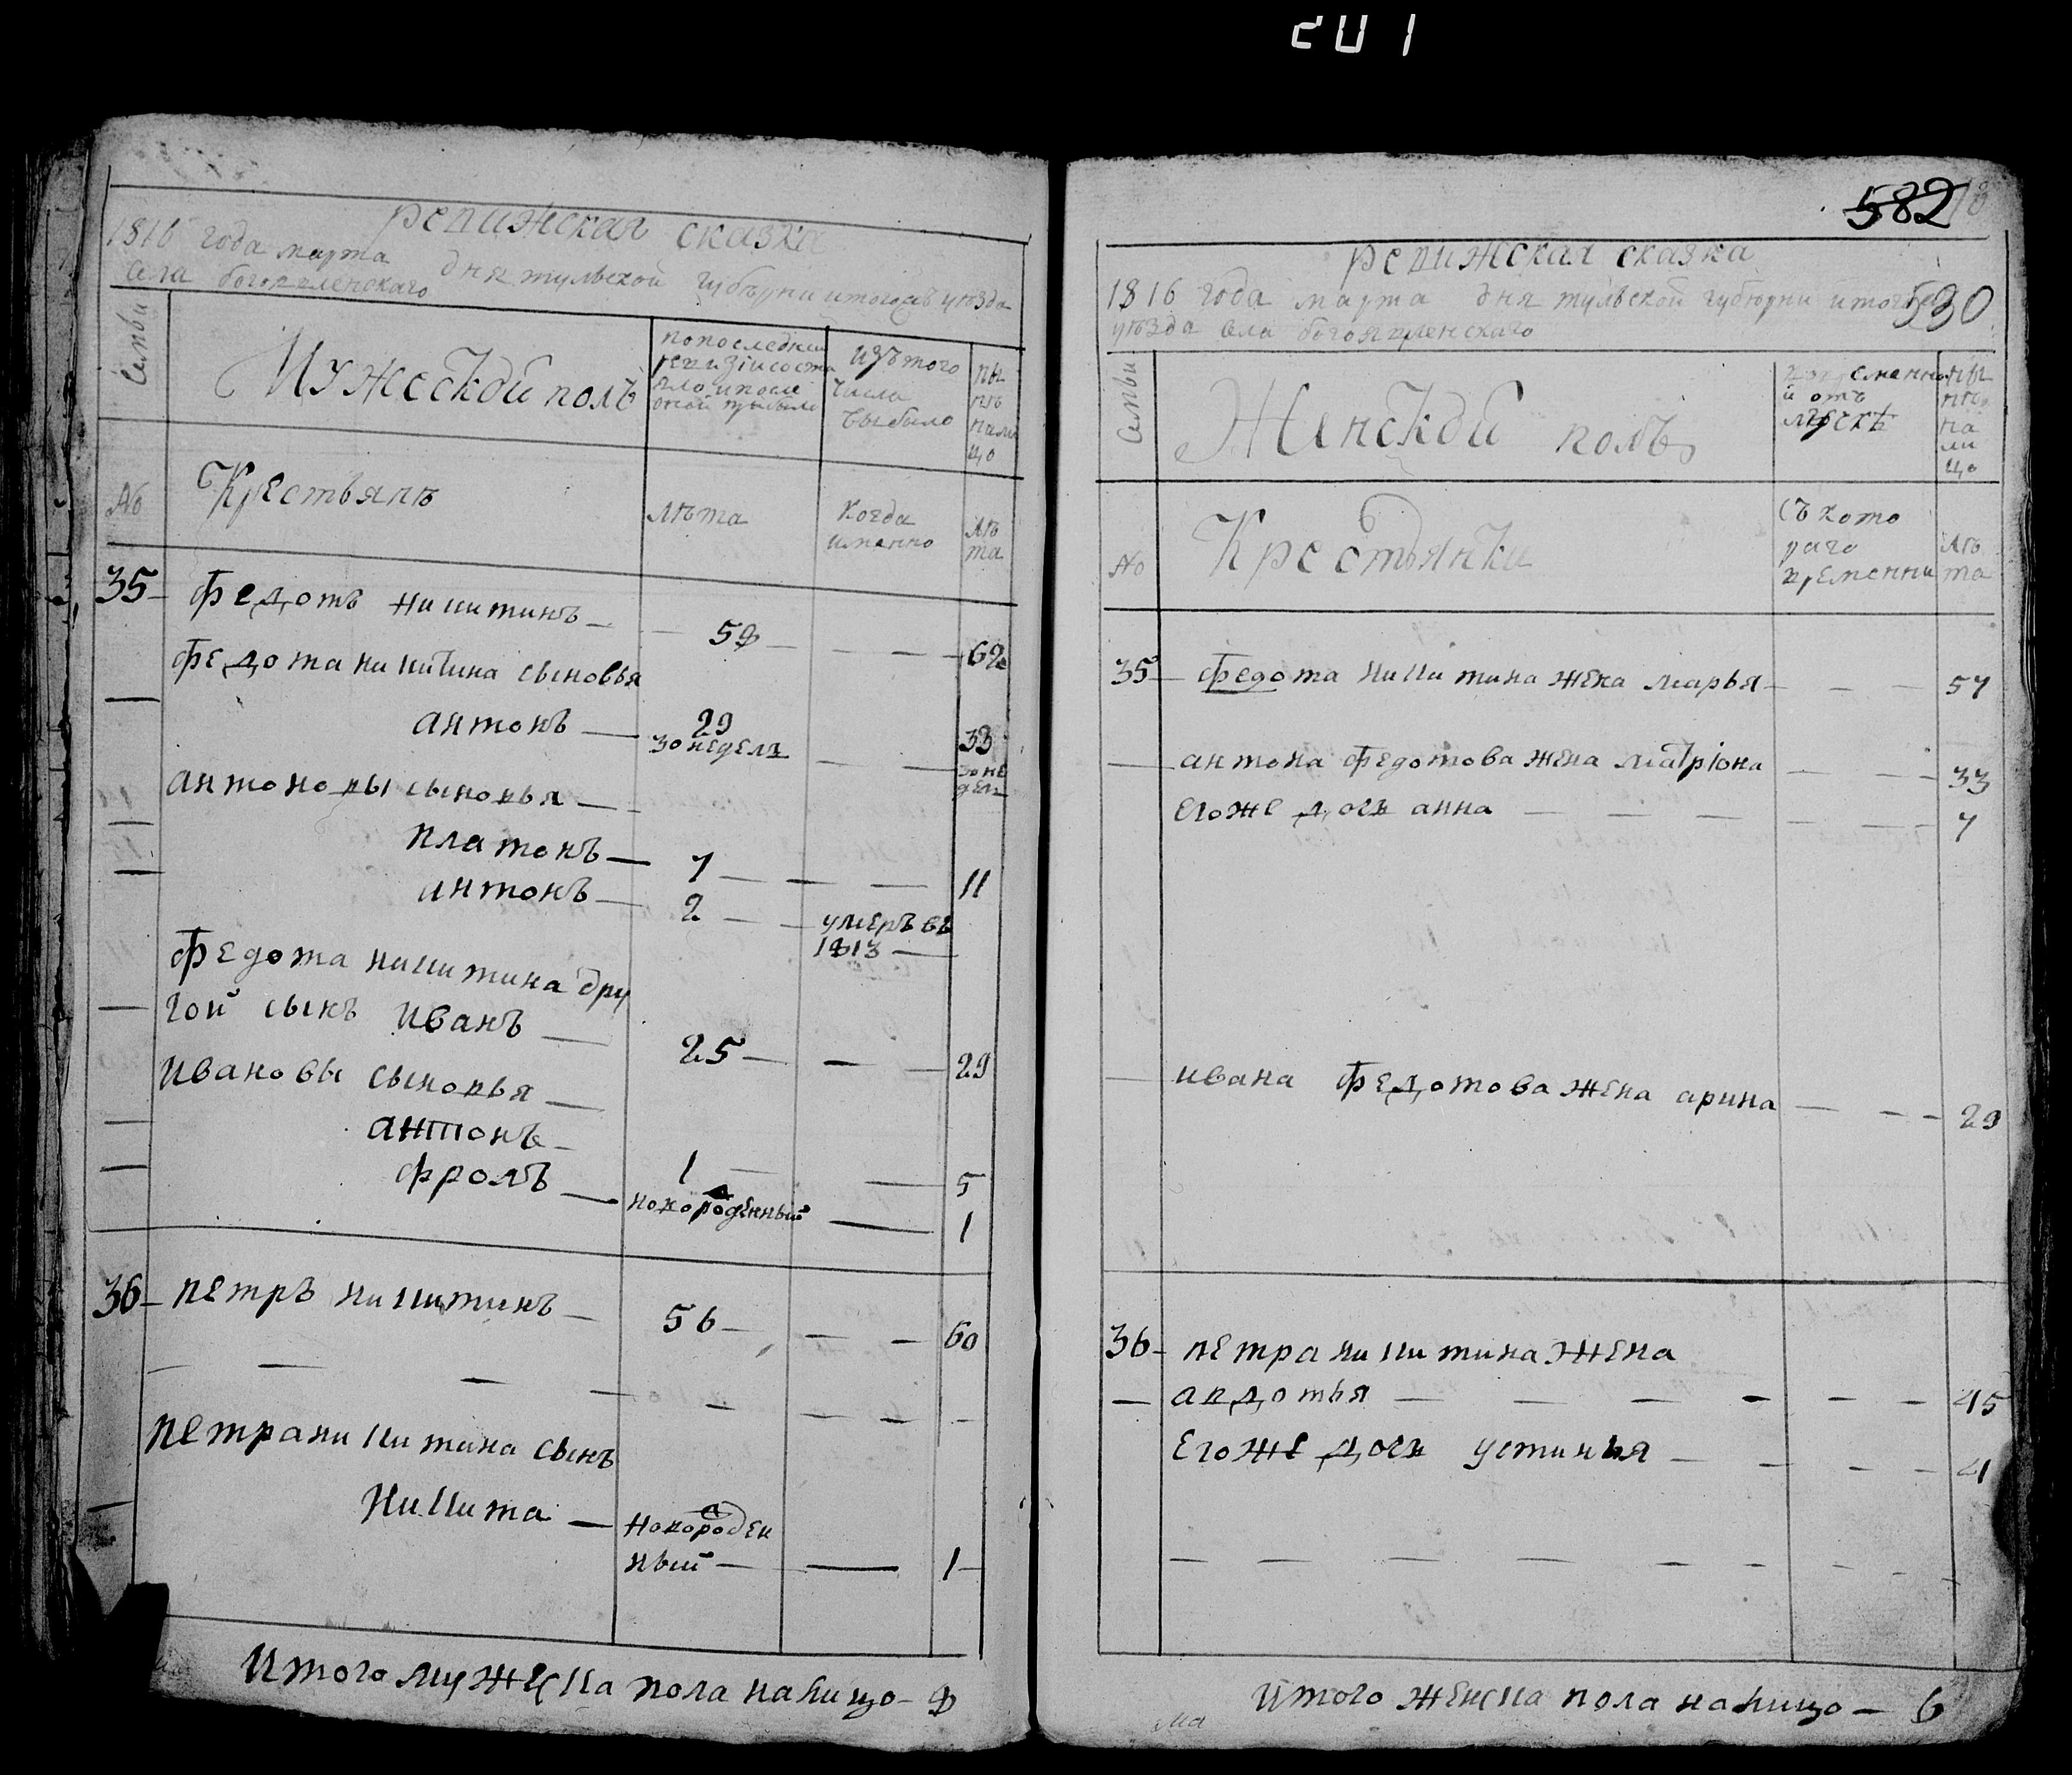 201
ревижская сказка
1816 года марта дня тульской губѣрни итогожъ уѣзда
села богоявленскаго
Семьи
Мужеской полъ
попоследней
ревизиі состо
яло и после
оной прибыло
Изътого
числа
выбыло
ны
нѣ
нали
цо
№
Крестьянѣ
лѣта
когда
имянно
лѣ
та
35 федотъ никитинъ 58 62
федота никитина сыновья
антонъ 29 33
30 неделъ
30 не
дел
антоновы сыновья
платонъ 7 11
антонъ 2 умеръ въ
1813
федота никитина дру
гой сынъ иванъ 25 29
ивановы сыновья
антонъ 1 5
фролъ новорожденный 1
36 петръ никитинъ 56 60
петра никитина сынъ
никита новорожден
ный 1
Итого мужеска пола налицо 8
582
18
ревижская сказка
1816 года марта дня тульской губюрни итогожъ
530
уѣзда села богоявленскаго
Семьи
Женской полъ
во временно
й отъ
лучкѣ
ны
нѣ
на
ли
цо
№
Крестьянки
съ кото
раго
времени
лѣ
та
35 федота никитина жена марья 57
антона федотова жена матріона 33
егоже дочь анна 7
ивана федотова жена арина 29
36 петра никитина жена
авдотья 45
егоже дочь устинья 4
Итого женска пола налицо 6